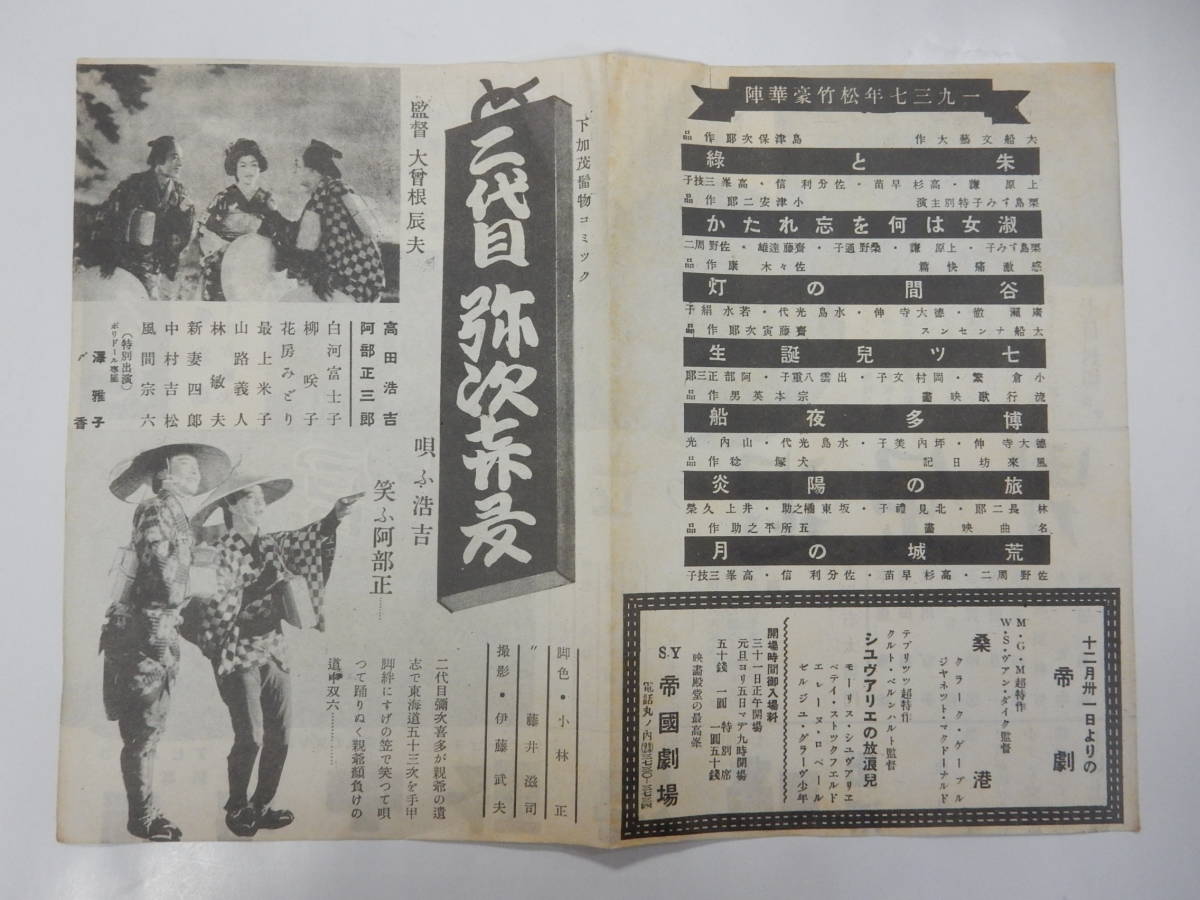 一九三七年松竹豪華陣
大船文藝大作 島津保次郎作品
朱と綠
上原謙・高杉早苗・佐分利信・高峯三枝子
栗島すみ子特別主演 小津安二郎作品
淑女は何を忘れたか
栗島すみ子・上原謙・桑野通子・齋藤達雄・佐野周二
感激痛快篇 佐々木康作品
谷間の灯
廣瀬徹・德大寺伸・水島光代・若水絹子
大船ナンセンス 齋藤寅次郎作品
七ツ兒誕生
小倉繁・岡村文子・出雲八重子・阿部正三郎
流行歌映畫 宗本英男作品
博多夜船
德大寺伸・坪内美子・水島光代・山内光
風來坊日記 犬塚稔作品
旅の陽炎
林長二郎・北見禮子・坂東橘之助・井上久榮
名曲映畫 五所平之助作品
荒城の月
佐野周二・高杉早苗・佐分利信・高峯三枝子
十二月卅一日よりの
帝劇
M・G・M超特作
W・S・ヴァン・ダイク監督
桑港
クラーク・ゲーブル
ジャネット・マクドーナルド
テブリッツ超特作
クルト・ベルンハルト監督
シュヴアリエの放浪兒
モーリス・シュヴアリエ
ベテイ・ストックフエルド
エレーヌ・ロベール
ゼルジユ・グラーヴ少年
開場時間御入場料
三十一日正午開場
元旦ヨリ五日マデ九時開場
五十錢 一圓 特別席 一圓五十錢
映畫殿堂の最高峯
S.Y 帝國劇場
下加茂髷物コミック
と二代目弥次喜多
監督 大曾根辰夫
高田浩吉
阿部正三郎
白河富士子
柳咲子
花房みどり
最上米子
山路義人
林敏夫
新妻四郎
中村吉松
風間宗六
(特別出演)
ポリドール專屬
澤雅子
〃 香
唄ふ浩吉
笑ふ阿部正……
脚色・小林正
〃 藤井滋司
撮影・伊藤武夫
二代目彌次喜多が親爺の遺
志で東海道五十三次を手甲
脚絆にすげの笠で笑つて唄
つて踊りぬく親爺顔負けの
道中双六……